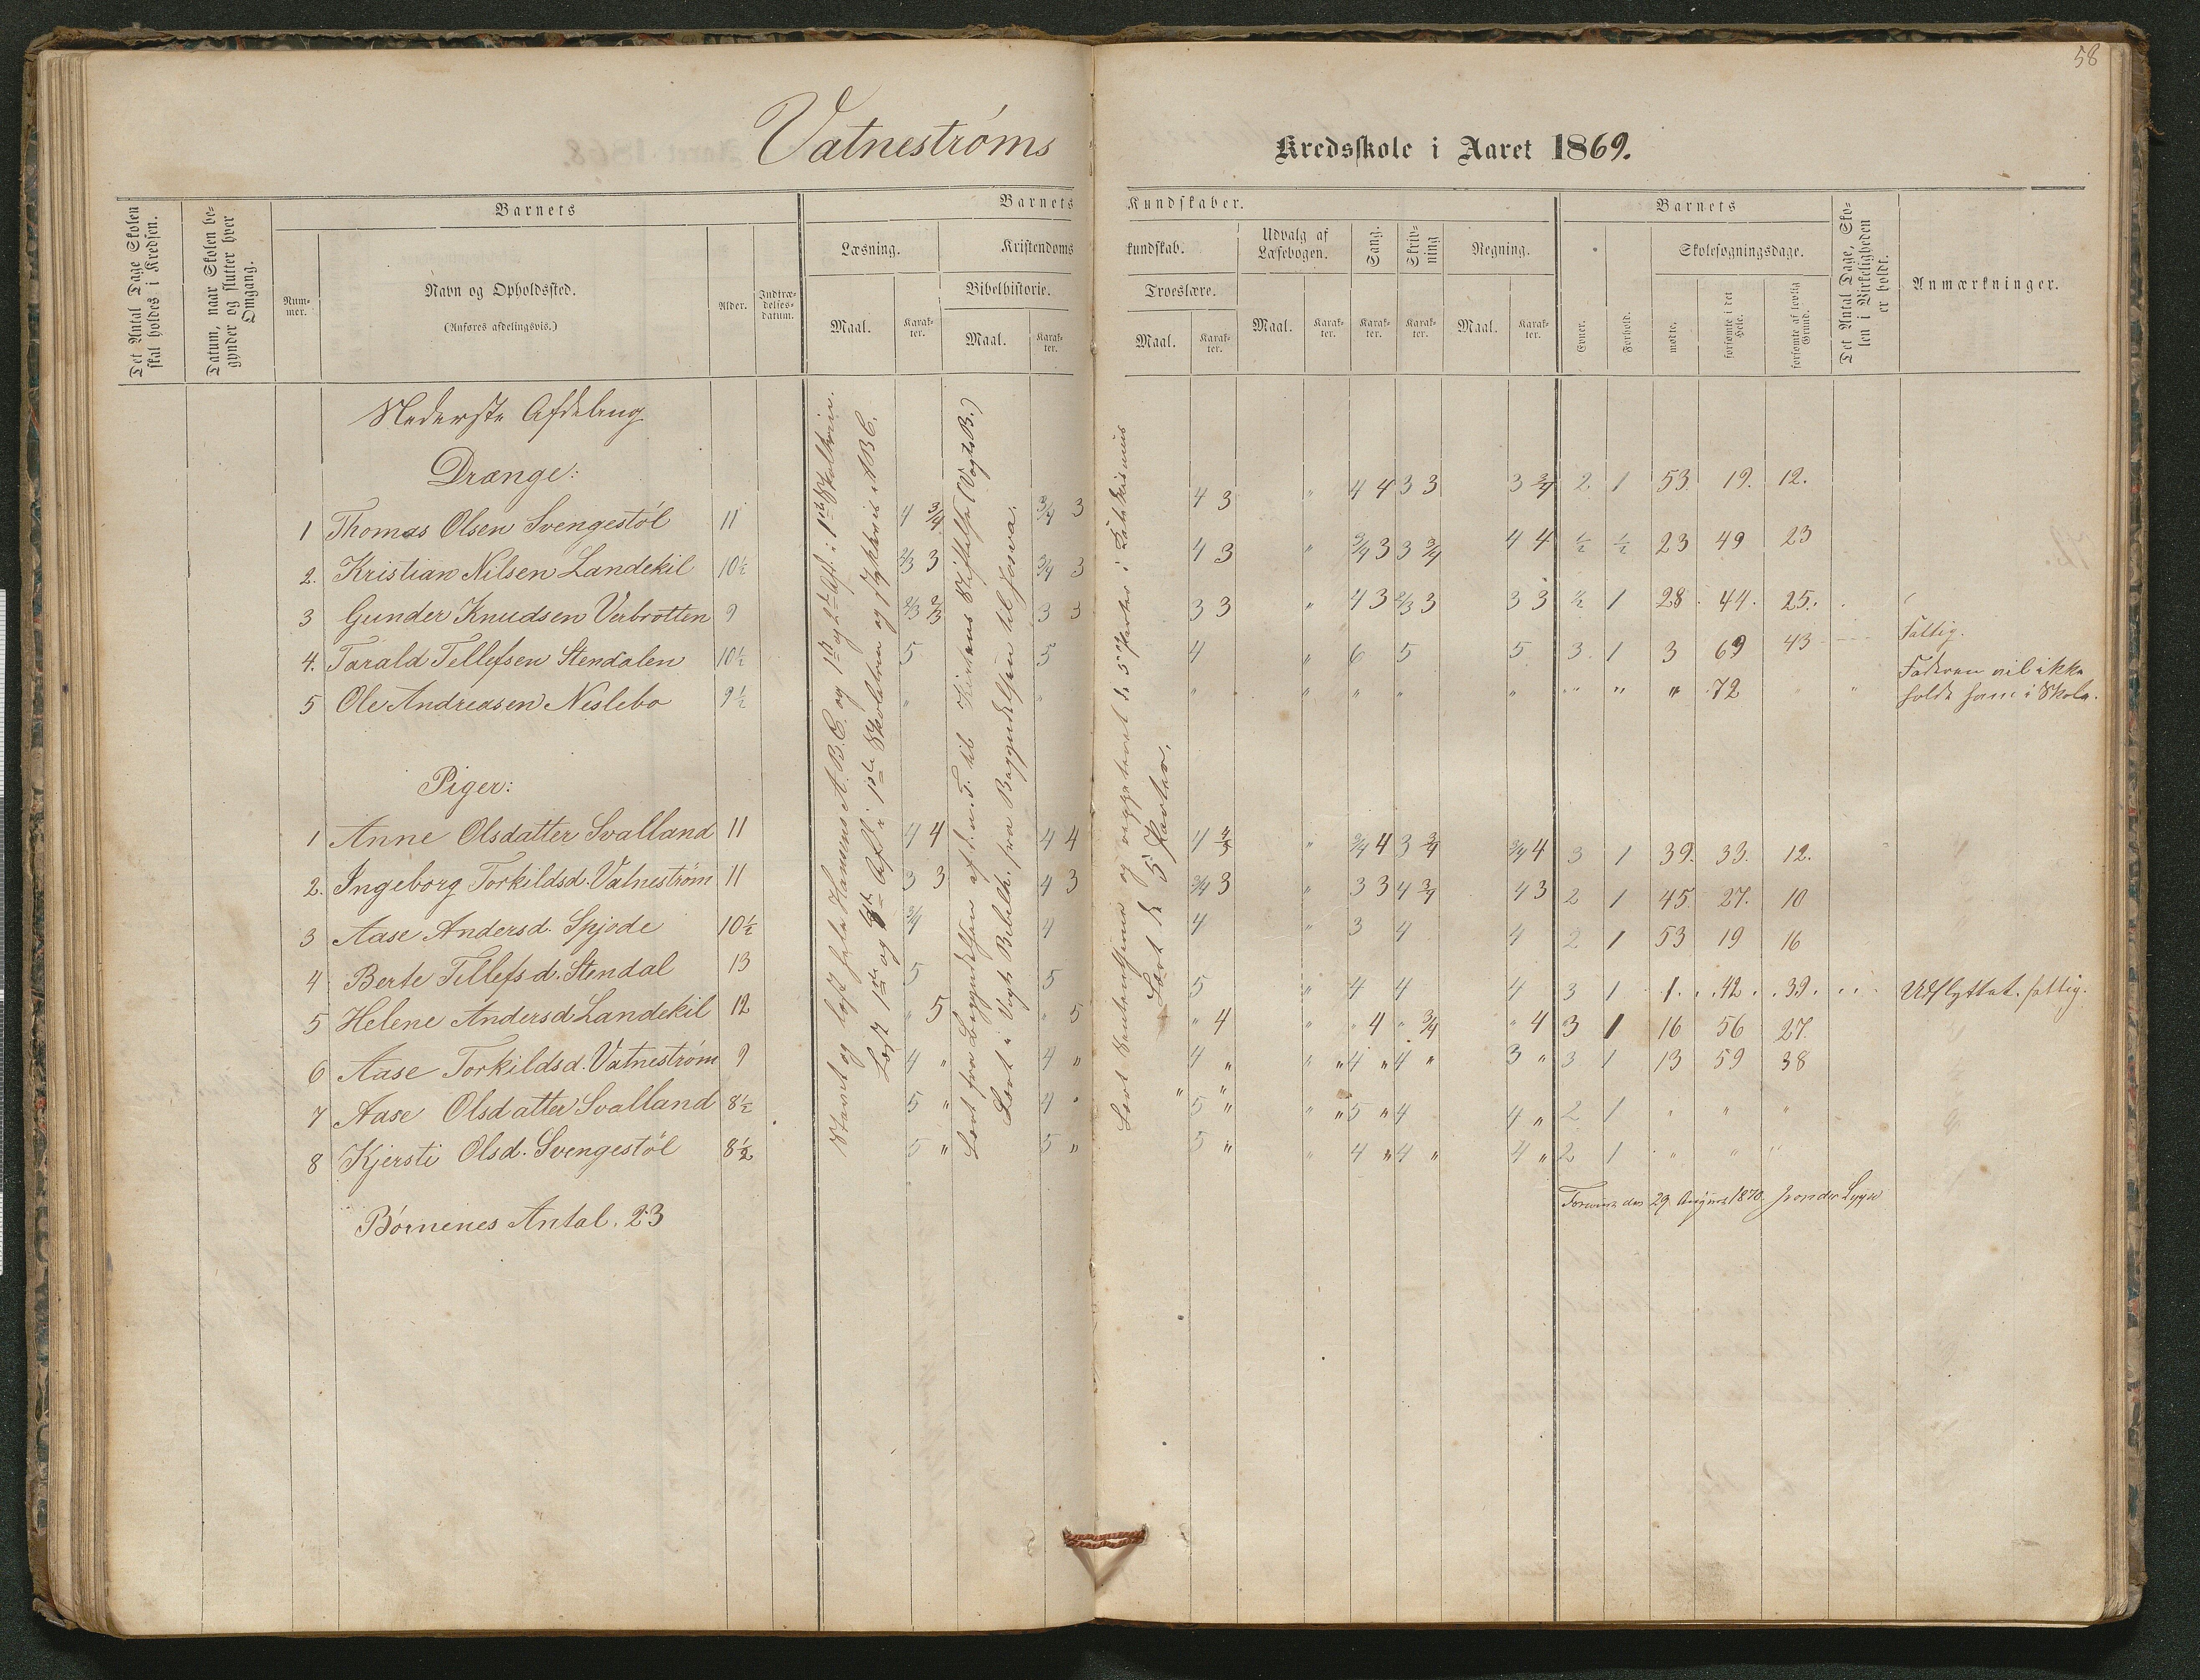 58
Vatneströms Kredsskole i Aaret 1869.
Det Antal Dage Skolen skal holdes i Kredsen.
Datum, naar Skolen begynder og slutter hver Omgang.
Barnets
Nummer.
Navn og Opholdssted.
(Anføres afdelingsvis.)
Alder.
Indtrædelsesdatum.
Barnets Kundskaber.
Læsning.
Maal.
Karakter.
Kristendomskundskab.
Bibelhistorie.
Maal.
Karakter.
Troeslære.
Maal.
Karakter.
Udvalg af Læsebogen.
Maal.
Karakter.
Sang.
Karakter.
Skrivning
Karakter.
Regning.
Maal.
Karakter.
Barnets
Evner.
Forhold.
Skolesøgningsdage.
mødte.
forsømte i det Hele.
forsømte af lovlig Grund.
Det Antal Dage, Skolen i Virkeligheden er holdt.
Anmærkninger.
Nederste Afdeling
Drænge:
1 Thomas Olsen Svengestöl 11 4 3/4 3/4 3 4 3 " 4 4 3 3 3 3/4 2. 1 53. 19. 12.
2. Kristian Nilsen Landekil 10½ 2/3 3 3/4 3 4 3 " 3/4 3 3 3/4 4 4 ½ ½ 23 49 23
3 Gunder Knudsen Verbrotten 9 2/3 2/3 3 3 3 3 " 4 3 2/3 3 3 3 ½ 1 28. 44. 25.
4. Tarald Tellefsen Stendalen 10½ 5 5 4 " 6 5 5 3. 1 3 69 43 Fattig.
5 Ole Andreasen Neslebo 9½ " " " " " " " " " " 72 " " Faderen vil ikke
holde ham i Skole.
Piger:
1 Anne Olsdatter Svalland 11 4 4 4 4 4 4/3 " 3/4 4 3 3/4 3/4 4 3 1 39. 33. 12.
2. Ingeborg Torkildsd. Vatneström 11 3 3 4 3 3/4 3 " 3 3 4 3/4 4 3 2 1 45. 27. 10
3 Aase Andersd. Spjode 10½ 3/4 4 4 " 3 4 4 2 1 53 19 16
4 Berte Tellefsd. Stendal 13 5 5 5 " 4 4 4 3 1 1. 42. 39. Udflyttet. fattig.
5 Helene Andersd Landekil 12 " 5 " 5 " 4 " " 4 " 3/4 " 4 3 1 16 56 27.
6 Aase Torkildsd. Vatneström 9 4 " 4 " 4 " " " 4 " 4 " 3 " 3 1 13 59 38
7 Aase Olsdatter Svalland 8½ 5 " 4 " 5 " " " 5 " 4 4 " 2 1 " " "
8 Kjersti Olsd. Svengestöl 8½ 5 " 5 " 5 " " 4 " 4 " 4 " 2 1 " " "
Börnenes Antal. 23
Stavet og læst hele Hansens A.B.C. og 1ste og 2den Afd. i 1ste Skoletrin.
Læst 1ste og Afd. i 1ste Skoletrin og stykkevis ABC.
Lært fra Begyndelsen af d. n. T. til Kirkens Stiftelse (Vogts B.)
Lært i Vogts Bibelh. fra Begyndelsen til Josva.
Lært og repeteret de 5 Parter i Katekismus
Lært de 5 Parter.
den 29 August 1870.